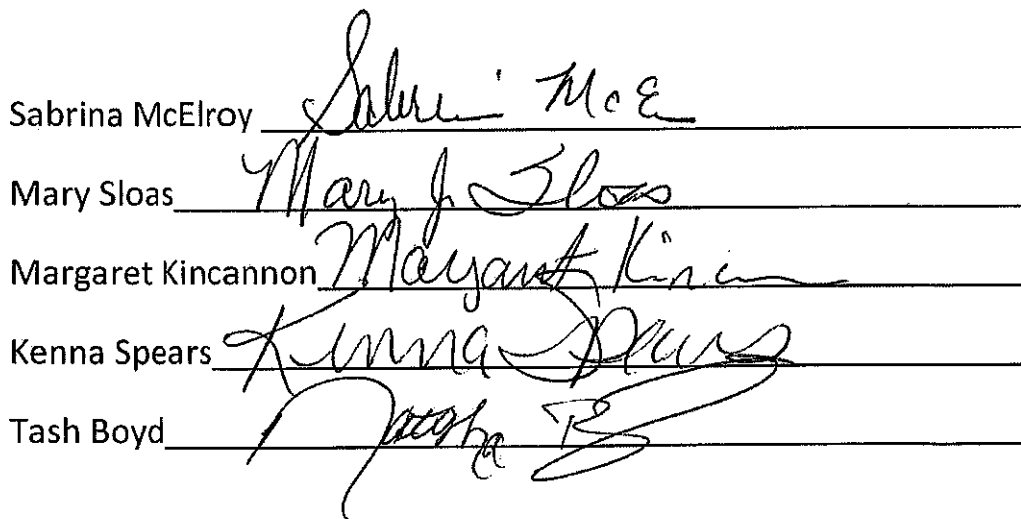 Sabrina McElroy Sabrina McE
Mary Sloas Mary J Sloas
Margaret Kincannon Margaret Kincannon
Kenna Spears Kenna Spears
Tash Boyd Natasha B